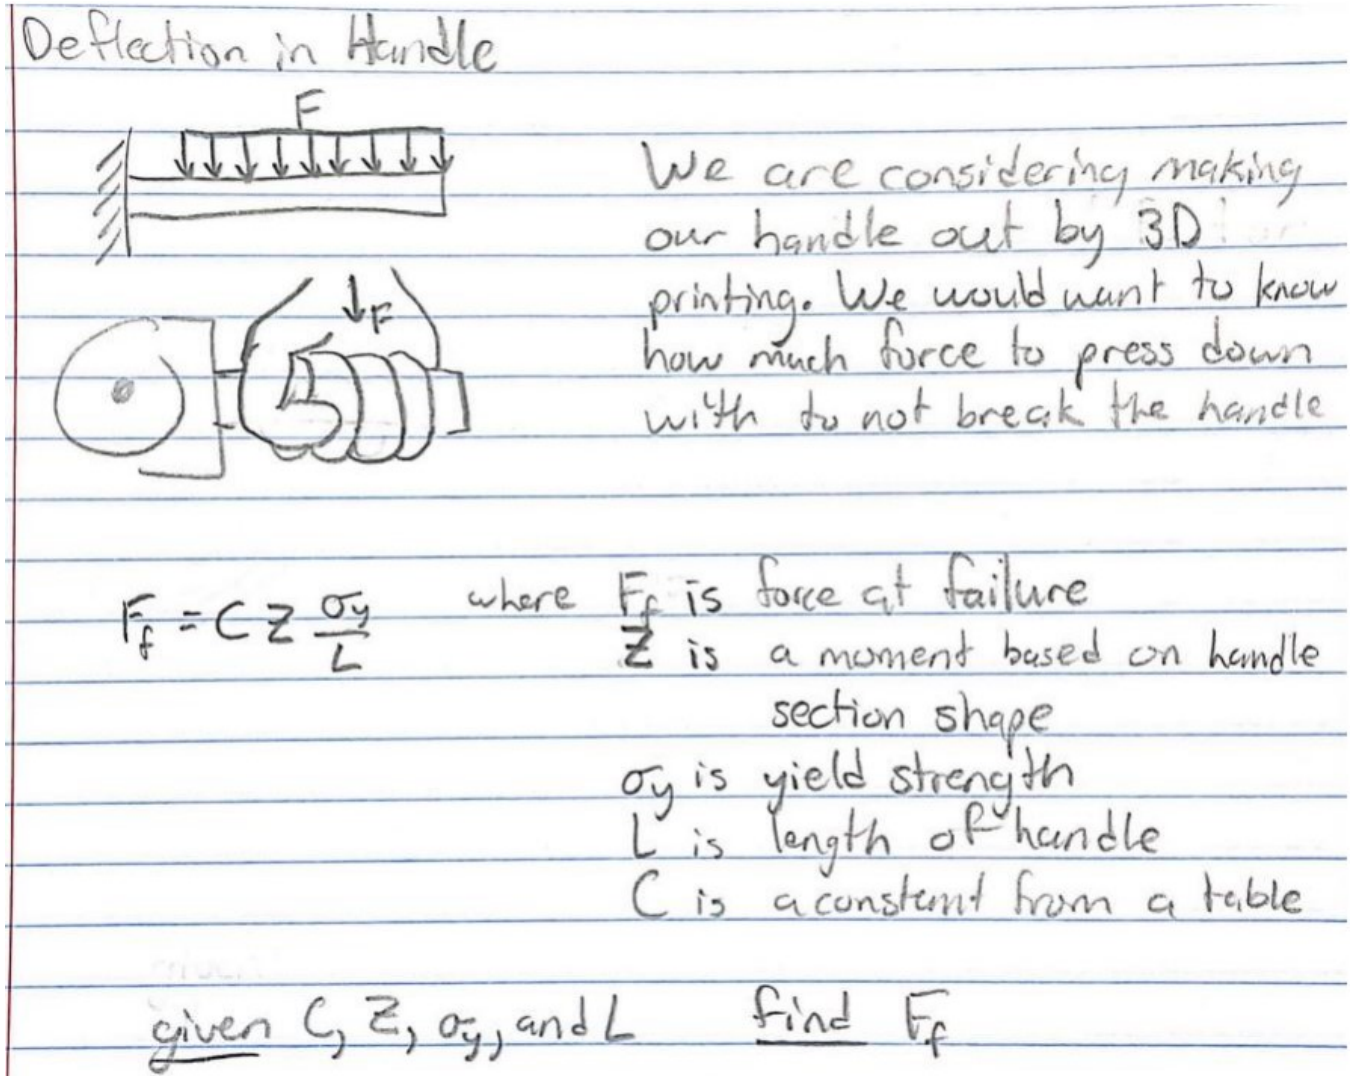 Deflection in Handle
F
We are considering making
our handle out by 3D
printing. We would want to know
F
how much force to press down
with to not break the handle
F_f = C Z σ_y / L where F_f is force at failure
Z is a moment based on handle
section shape
σ_y is yield strength
L is length of handle
C is a constant from a table
given C, Z, σ_y, and L find F_f